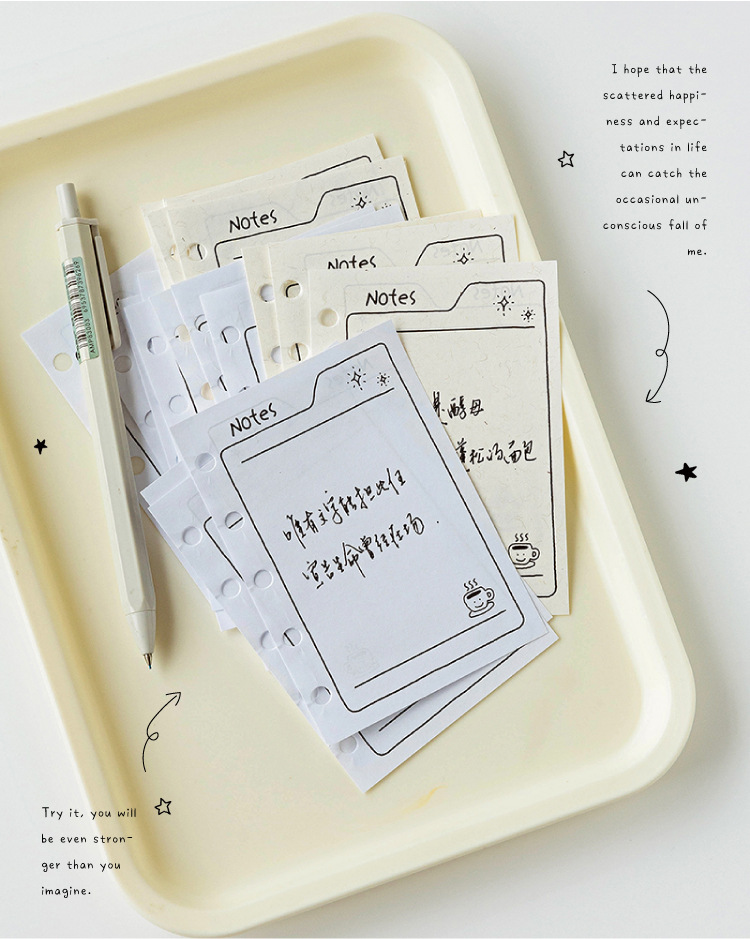 I hope that the
scattered happi-
ness and expec-
tations in life
can catch the
occasional un-
conscious fall of
me.
Notes
Notes
Notes
酵母
松的面包
Notes
唯有文字能担此任
宣告生命曾经在场.
AMP33003
Try it, you will
be even stron-
ger than you
imagine.